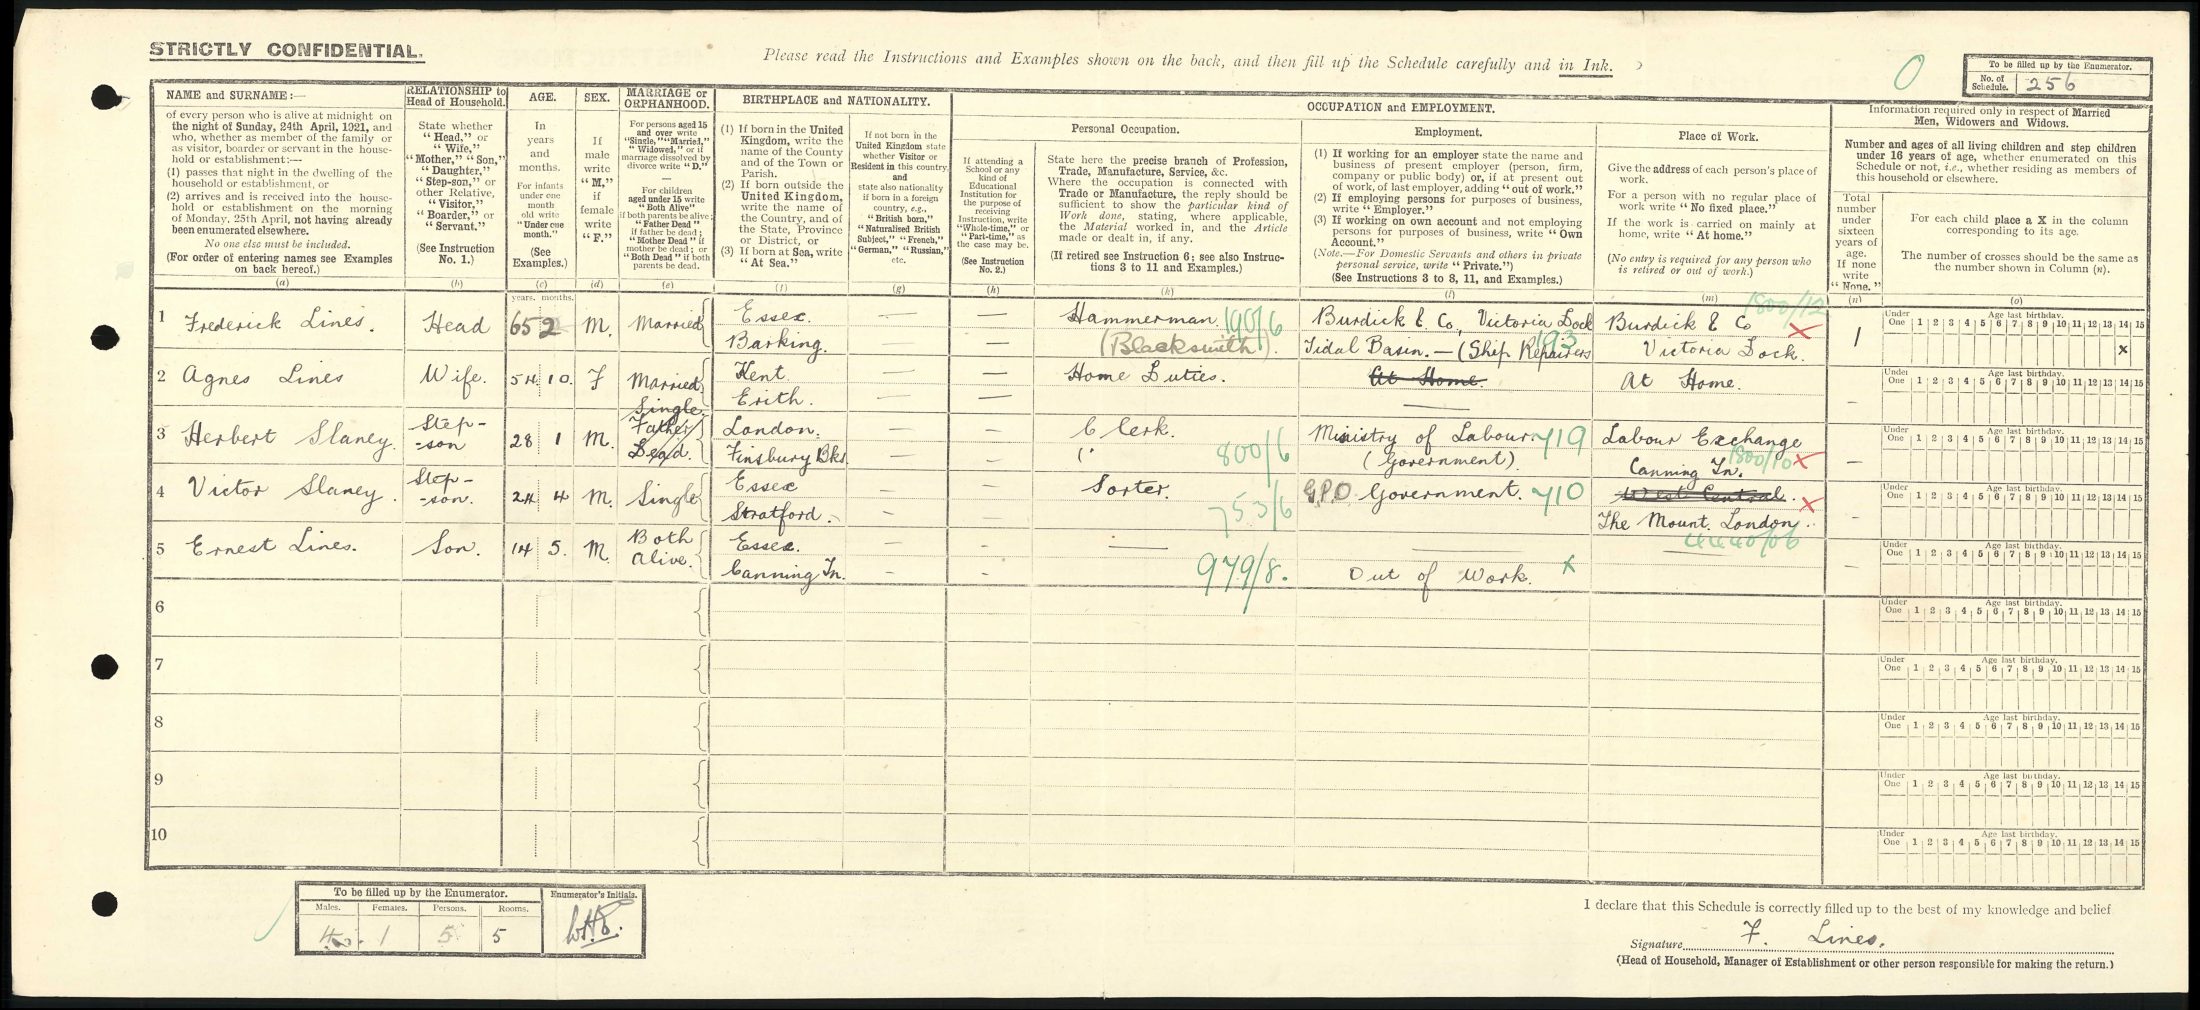 STRICTLY CONFIDENTIAL.
Please read the Instructions and Examples shown on the back, and then fill up the Schedule carefully and in Ink.
0
To be filled up by the Enumerator.
No. of Schedule. 256
NAME and SURNAME:—
of every person who is alive at midnight on
the night of Sunday, 24th April, 1921, and
who, whether as member of the family or
as visitor, boarder or servant in the house-
hold or establishment:—
(1) passes that night in the dwelling of the
household or establishment, or
(2) arrives and is received into the house-
hold or establishment on the morning
of Monday, 25th April, not having already
been enumerated elsewhere.
No one else must be included.
(For order of entering names see Examples
on back hereof.)
(a)
RELATIONSHIP to
Head of Household.
State whether
"Head," or
"Wife,"
"Mother," "Son,"
"Daughter,"
"Step-son," or
other Relative,
"Visitor,"
"Boarder," or
"Servant."
(See Instruction
No. 1.)
(b)
AGE.
In
years
and
months.
For infants
under one
month
old write
"Under one
month."
(See
Examples.)
(c)
years. months.
SEX.
If
male
write
"M,"
if
female
write
"F."
(d)
MARRIAGE or
ORPHANHOOD.
For persons aged 15
and over write
"Single," "Married,"
"Widowed," or if
marriage dissolved by
divorce write "D."
For children
aged under 15 write
"Both Alive"
if both parents be alive;
"Father Dead"
if father be dead;
"Mother Dead" if
mother be dead; or
"Both Dead" if both
parents be dead.
(e)
BIRTHPLACE and NATIONALITY.
(1) If born in the United
Kingdom, write the
name of the County
and of the Town or
Parish.
(2) If born outside the
United Kingdom,
write the name of
the Country, and of
the State, Province
or District, or
(3) If born at Sea, write
"At Sea."
(f)
If not born in the
United Kingdom state
whether Visitor or
Resident in this country,
and
state also nationality
if born in a foreign
country, e.g.,
"British born,"
"Naturalised British
Subject," "French,"
"German," "Russian,"
etc.
(g)
OCCUPATION and EMPLOYMENT.
Personal Occupation.
If attending a
School or any
kind of
Educational
Institution for
the purpose of
receiving
Instruction, write
"Whole-time," or
"Part-time," as
the case may be.
(See Instruction
No. 2.)
(h)
State here the precise branch of Profession,
Trade, Manufacture, Service, &c.
Where the occupation is connected with
Trade or Manufacture, the reply should be
sufficient to show the particular kind of
Work done, stating, where applicable,
the Material worked in, and the Article
made or dealt in, if any.
(If retired see Instruction 6; see also Instruc-
tions 3 to 11 and Examples.)
(k)
Employment.
(1) If working for an employer state the name and
business of present employer (person, firm,
company or public body) or, if at present out
of work, of last employer, adding "out of work."
(2) If employing persons for purposes of business,
write "Employer."
(3) If working on own account and not employing
persons for purposes of business, write "Own
Account."
(Note.—For Domestic Servants and others in private
personal service, write "Private.")
(See Instructions 3 to 8, 11, and Examples.)
(l)
Place of Work.
Give the address of each person's place of
work.
For a person with no regular place of
work write "No fixed place."
If the work is carried on mainly at
home, write "At home."
(No entry is required for any person who
is retired or out of work.)
(m)
Information required only in respect of Married
Men, Widowers and Widows.
Number and ages of all living children and step children
under 16 years of age, whether enumerated on this
Schedule or not, i.e., whether residing as members of
this household or elsewhere.
Total
number
under
sixteen
years of
age.
If none
write
"None."
(n)
For each child place a X in the column
corresponding to its age.
The number of crosses should be the same as
the number shown in Column (n).
(o)
1 Frederick Lines. Head 65 2 M. Married Essex. Barking. — — Hammerman. 190/6 (Blacksmith). Burdick & Co., Victoria Dock Tidal Basin. — (Ship Repairers 193 Burdick & Co Victoria Dock. 1800/12 X 1
Under One 1 2 3 4 5 6 7 8 9 10 11 12 13 14 15 Age last birthday. x
2 Agnes Lines Wife. 54 10. F Married Kent. Erith. — — Home Duties. At Home. At Home. —
Under One 1 2 3 4 5 6 7 8 9 10 11 12 13 14 15 Age last birthday.
3 Herbert Slaney. Step- -son 28 1 M. Single. Father Dead. London. Finsbury Bks. — — Clerk. 800/6 Ministry of Labour (Government). 719 Labour Exchange Canning Tn. 1800/10 X —
Under One 1 2 3 4 5 6 7 8 9 10 11 12 13 14 15 Age last birthday.
4 Victor Slaney. Step- -son. 24 4 M. Single Essex Stratford. — — Sorter. 753/6 G.P.O Government. 710 West Central. X The Mount. London. 4440/06 —
Under One 1 2 3 4 5 6 7 8 9 10 11 12 13 14 15 Age last birthday.
5 Ernest Lines. Son. 14 5. M. Both Alive. Essex. Canning Tn. — — — 979/8. Out of Work. x — —
Under One 1 2 3 4 5 6 7 8 9 10 11 12 13 14 15 Age last birthday.
6
Under One 1 2 3 4 5 6 7 8 9 10 11 12 13 14 15 Age last birthday.
7
Under One 1 2 3 4 5 6 7 8 9 10 11 12 13 14 15 Age last birthday.
8
Under One 1 2 3 4 5 6 7 8 9 10 11 12 13 14 15 Age last birthday.
9
Under One 1 2 3 4 5 6 7 8 9 10 11 12 13 14 15 Age last birthday.
10
Under One 1 2 3 4 5 6 7 8 9 10 11 12 13 14 15 Age last birthday.
To be filled up by the Enumerator.
Males. Females. Persons. Rooms.
4 1 5 5
Enumerator's Initials.
I declare that this Schedule is correctly filled up to the best of my knowledge and belief
Signature F. Lines.
(Head of Household, Manager of Establishment or other person responsible for making the return.)